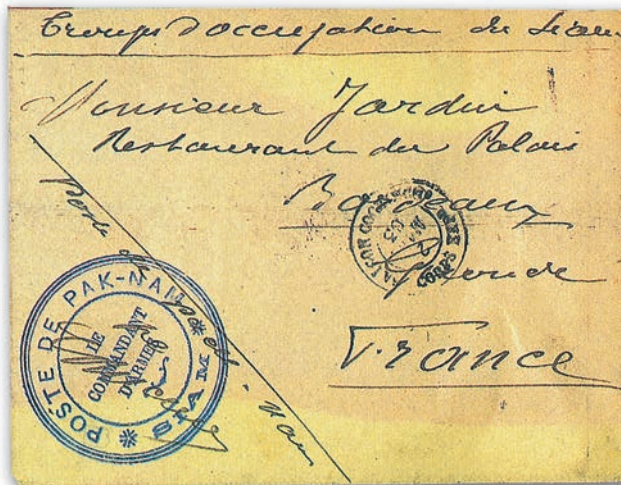 Troupes d'occupation du Siam
Monsieur Jardin
Restaurant du Palais
Bordeaux
Gironde
France
Poste de Pak-Nam
POSTE DE PAK-NAM
* SIAM *
LE
COMMANDANT
D'ARMES
SAIGON
CORPS